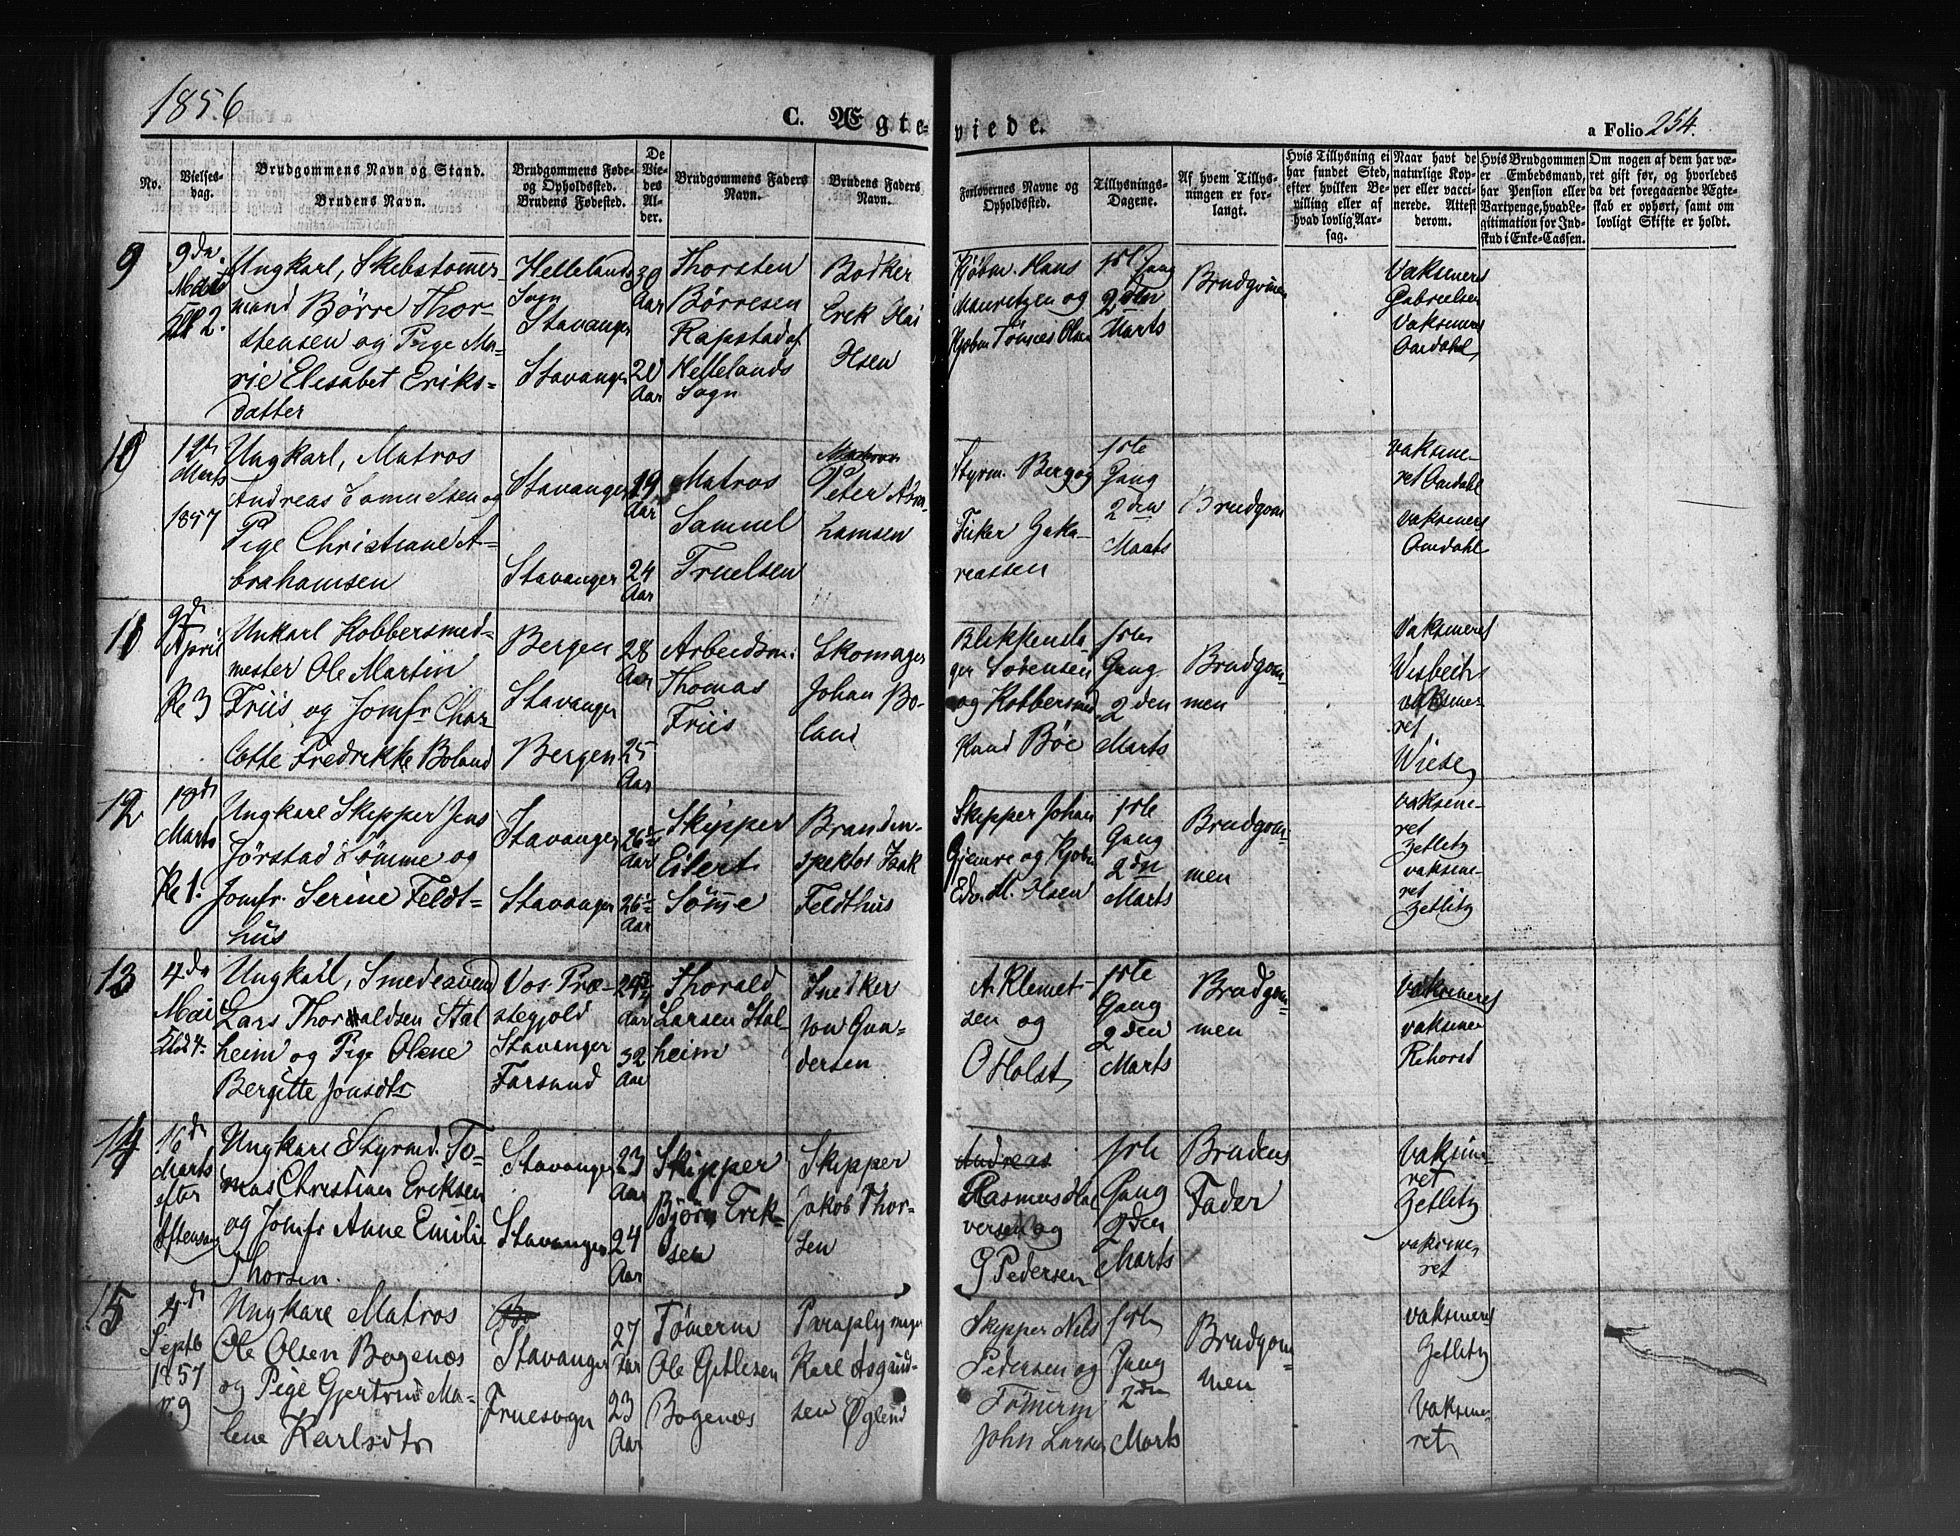 1856
C. Ægte-
viede.
a Folio 254.
No.
Vielses-
dag.
Brudgommens Navn og Stand.
Brudens Navn.
Brudgommens Føde-
og Opholdssted.
Brudens Fødested.
De
Vie-
des
Al-
der.
Brudgommens Faders
Navn.
Brudens Faders
Navn.
Forlovernes Navne og
Opholdssted.
Tillysnings-
Dagene.
Af hvem Tillys-
ningen er for-
langt.
Hvis Tillysning ei
har fundet Sted,
efter hvilken Be-
villing eller af
hvad lovlig Aar-
sag.
Naar havt de
naturlige Kop-
per eller vacci-
nerede. Attest
derom.
Hvis Brudgommen
er Embedsmand,
har Pension eller
Vartpenge, hvad Le-
gitimation for Ind-
skud i Enke-Cassen.
Om nogen af dem har væ-
ret gift før, og hvorledes
da det foregaaende Ægte-
skab er ophørt, samt om
lovligt Skifte er holdt.
9
9de
Kl 2.
Ungkarl, Skibstømmer
mand Børre Thor-
stensen og Pige Ma-
rie Elisabet Eriks-
datter
Hellelands
Sogn
Stavanger
Stavanger
30
Aar
20
Aar
Thorsten
Børresen
Rapstad af
Hellelands
Sogn
Bødker
Erik
Olsen
Kjøbm. Hans
Mauritzen og
Kjøbm Tønnes Olsen
1ste Gang
2den
Marts
Brudgomen
Vaksineret
Gabrielsen
Vaksineret
Aardahl
10
12te
Marts
1857
Ungkarl, Matros
Andreas Samuelsen og
Pige Christiane A-
brahamsen
Stavanger
Stavanger
19
Aar
24
Aar
Matros
Samuel
Truelsen
Matros
Peter Abra-
hamsen
Styrm. Berg og
Fisker Zaka-
reassen
1ste
Gang
2den
Marts
Brudgom
vaksine-
ret Aardahl
vaksineret
Aardahl
11
9de
April
Kl 3
Unkarl Kobbersmed-
mester Ole Martin
Friis og Jomfr Char-
lotte Fredrikke Boland
Bergen
Stavanger
Bergen
28
Aar
25
Aar
Arbeidsm.
Thomas
Friis
Skomager
Johan Bo-
land
Blikkensla-
ger Sørensen
og Kobbersmed
Knud Bøe
1ste
Gang
2den
Marts
Brudgom-
men
Vaksineret
Wisbech
vaksine-
ret
Wiese
12
18de
Marts
Kl 1.
Ungkarl Skipper Jens
Jørstad Sømme og
Jomfr. Serine Feldt-
hus
Stavanger
Stavanger
26
Aar
26
Aar
Skipper
Eilert
Sømme
Brandin-
spektør Isak
Feldthus
Skipper Johan
Gjemre og Kjøbm
Edv. M. Olsen
1ste
Gang
2den
Marts
Brudgom-
men
vaksine-
ret
Zetlitz
vaksine-
ret
Zetlitz
13
4de
Mai
Klok 4.
Ungkarl, Smedesvend
Lars Thoraldsen Stal
heim og Pige Olene
Bergitte Jonsdtr
Vos Præ-
stegjeld
Stavanger
Farsund
Aar
32
Aar
Thorald
Larsen Stal-
heim
Snedker
Jon Gun-
dersen
A. Klemet-
sen og
O Holst
1ste
Gang
2den
Marts
Brudgom
men
vaksineret
vaksine
Rihorst
14
16de
Marts
efter
Aftensang
Ungkarl Styrmd. To-
mas Christian Eriksen
og Jomfr Anne Emilie
Thorsen.
Stavanger
Stavanger
23
Aar
24
Aar
Skipper
Bjørn Erik-
sen
Skipper
Jakob Thor-
sen
Andreas
Rasmus Hal
versen og
G Pedersen
1ste
Gang
2den
Marts
Brudens
Fader
Vaksine-
ret
Zetlitz
vaksine
ret
15
4de
Septb
1857
Kl 9
Ungkarl Matros
Ole Olsen Bogenæs
og Pige Gjertrud Ma-
lene Karlsdtr
Stavanger
Fruesogn
27
Aar
23
Aar
Tømerm
Ole Gitlesen
Bogenæs
Paraplymager
Karl Asgaud-
sen Øglend
Skipper Nels
Pedersen og
Tømerm
John Larsen
1ste
Gang
2den
Marts
Brudgom-
men
Vaksineret
Zetlitz
Vaksine-
ret